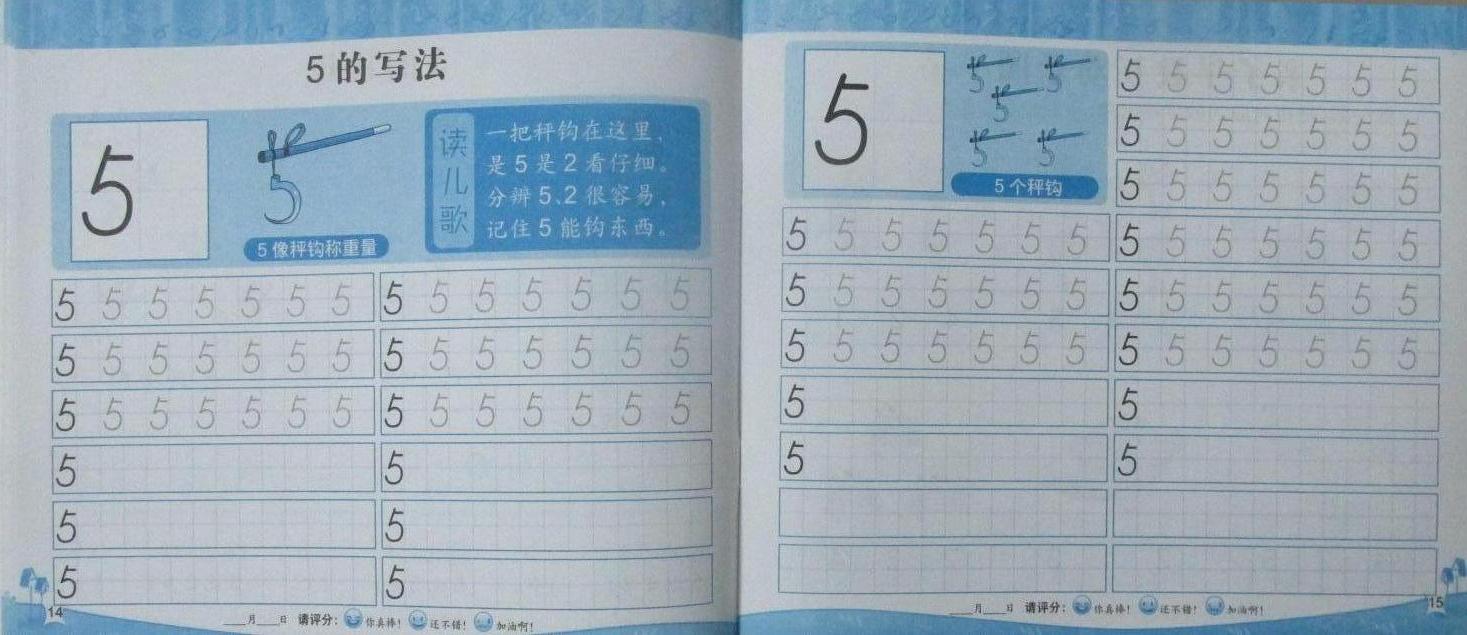 5的写法
5
5像秤钩称重量
读儿歌
一把秤钩在这里，
是5是2看仔细。
分辨5、2很容易，
记住5能钩东西。
5 5 5 5 5 5 5
5 5 5 5 5 5 5
5 5 5 5 5 5 5
5 5 5 5 5 5 5
5 5 5 5 5 5 5
5 5 5 5 5 5 5
5
5
5
5
5
5
14
___月___日 请评分： 你真棒！ 还不错！ 加油啊！
5
5个秤钩
5 5 5 5 5 5 5
5 5 5 5 5 5 5
5 5 5 5 5 5 5
5 5 5 5 5 5 5
5 5 5 5 5 5 5
5 5 5 5 5 5 5
5 5 5 5 5 5 5
5 5 5 5 5 5 5
5 5 5 5 5 5 5
5
5
5
5
___月___日 请评分： 你真棒！ 还不错！ 加油啊！
15